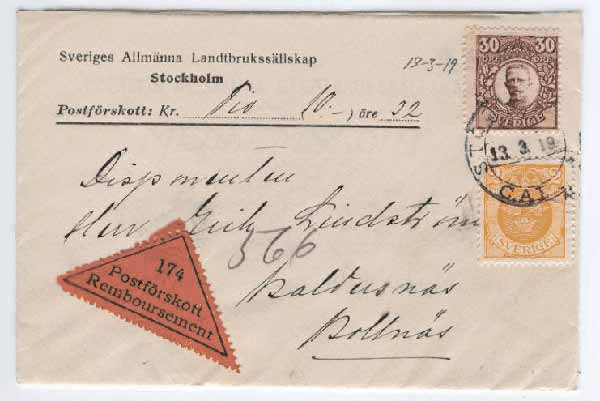 Sveriges Allmänna Landtbrukssällskap
Stockholm
Postförskott: Kr. Tio (10-) öre 32
13-3-19
30 30
SVERIGE
13. 3. 19
C.A.1
SVERIGE
Disponenten
Herr Erik Lindström
566
Baldersnäs
Bollnäs
174
Postförskott
Remboursement